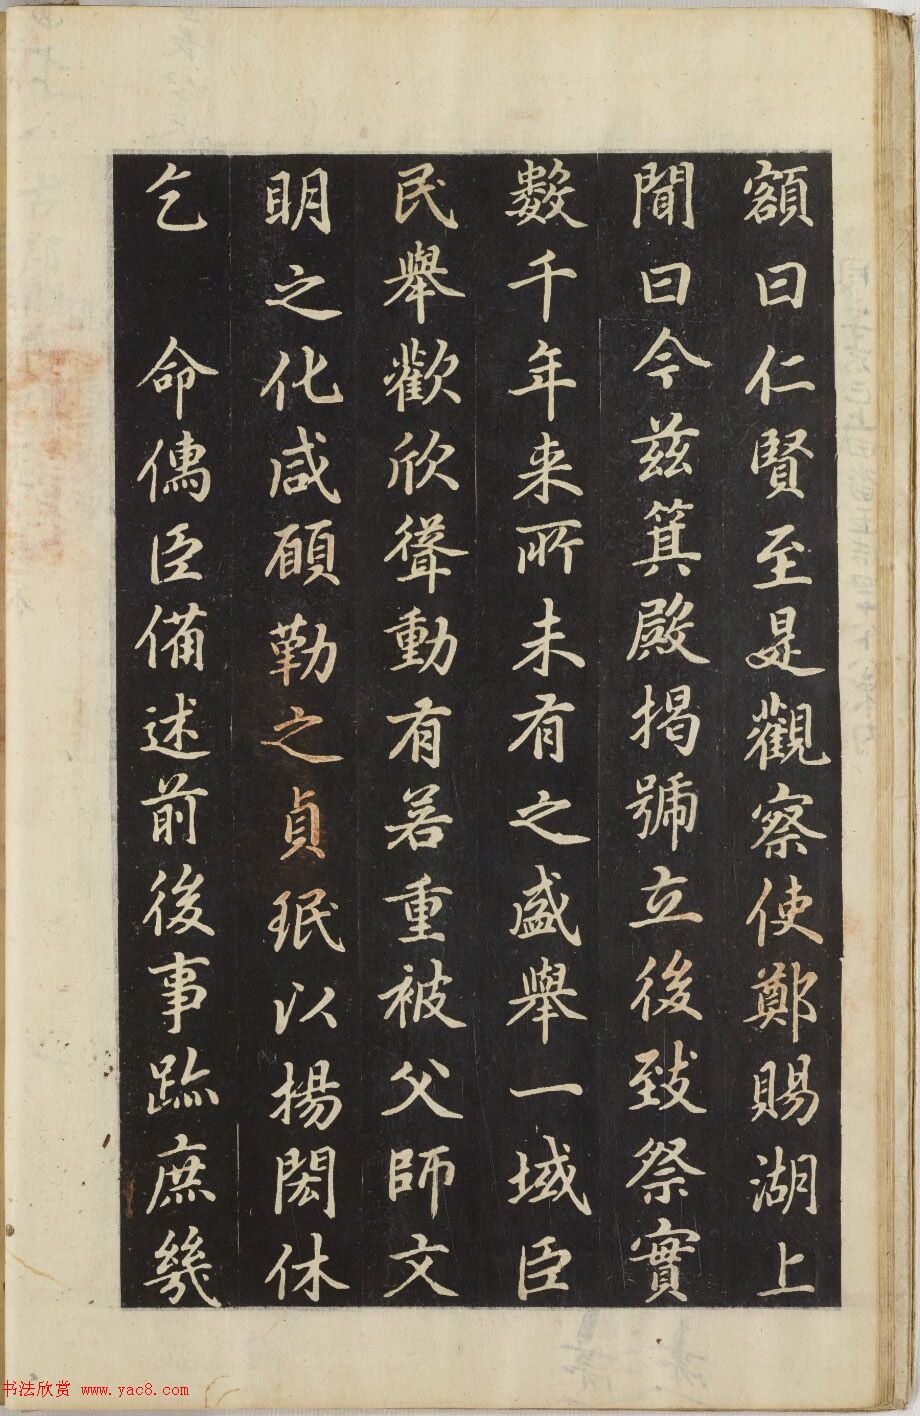 額曰仁賢至是觀察使鄭賜湖上
聞曰今茲箕殿揭號立後致祭實
數千年来所未有之盛舉一域臣
民舉歡欣聳動有若重被父師文
明之化咸願勒之貞珉以揚閎休
乞 命儁臣備述前後事跡庶幾
书法欣赏 www.yac8.com